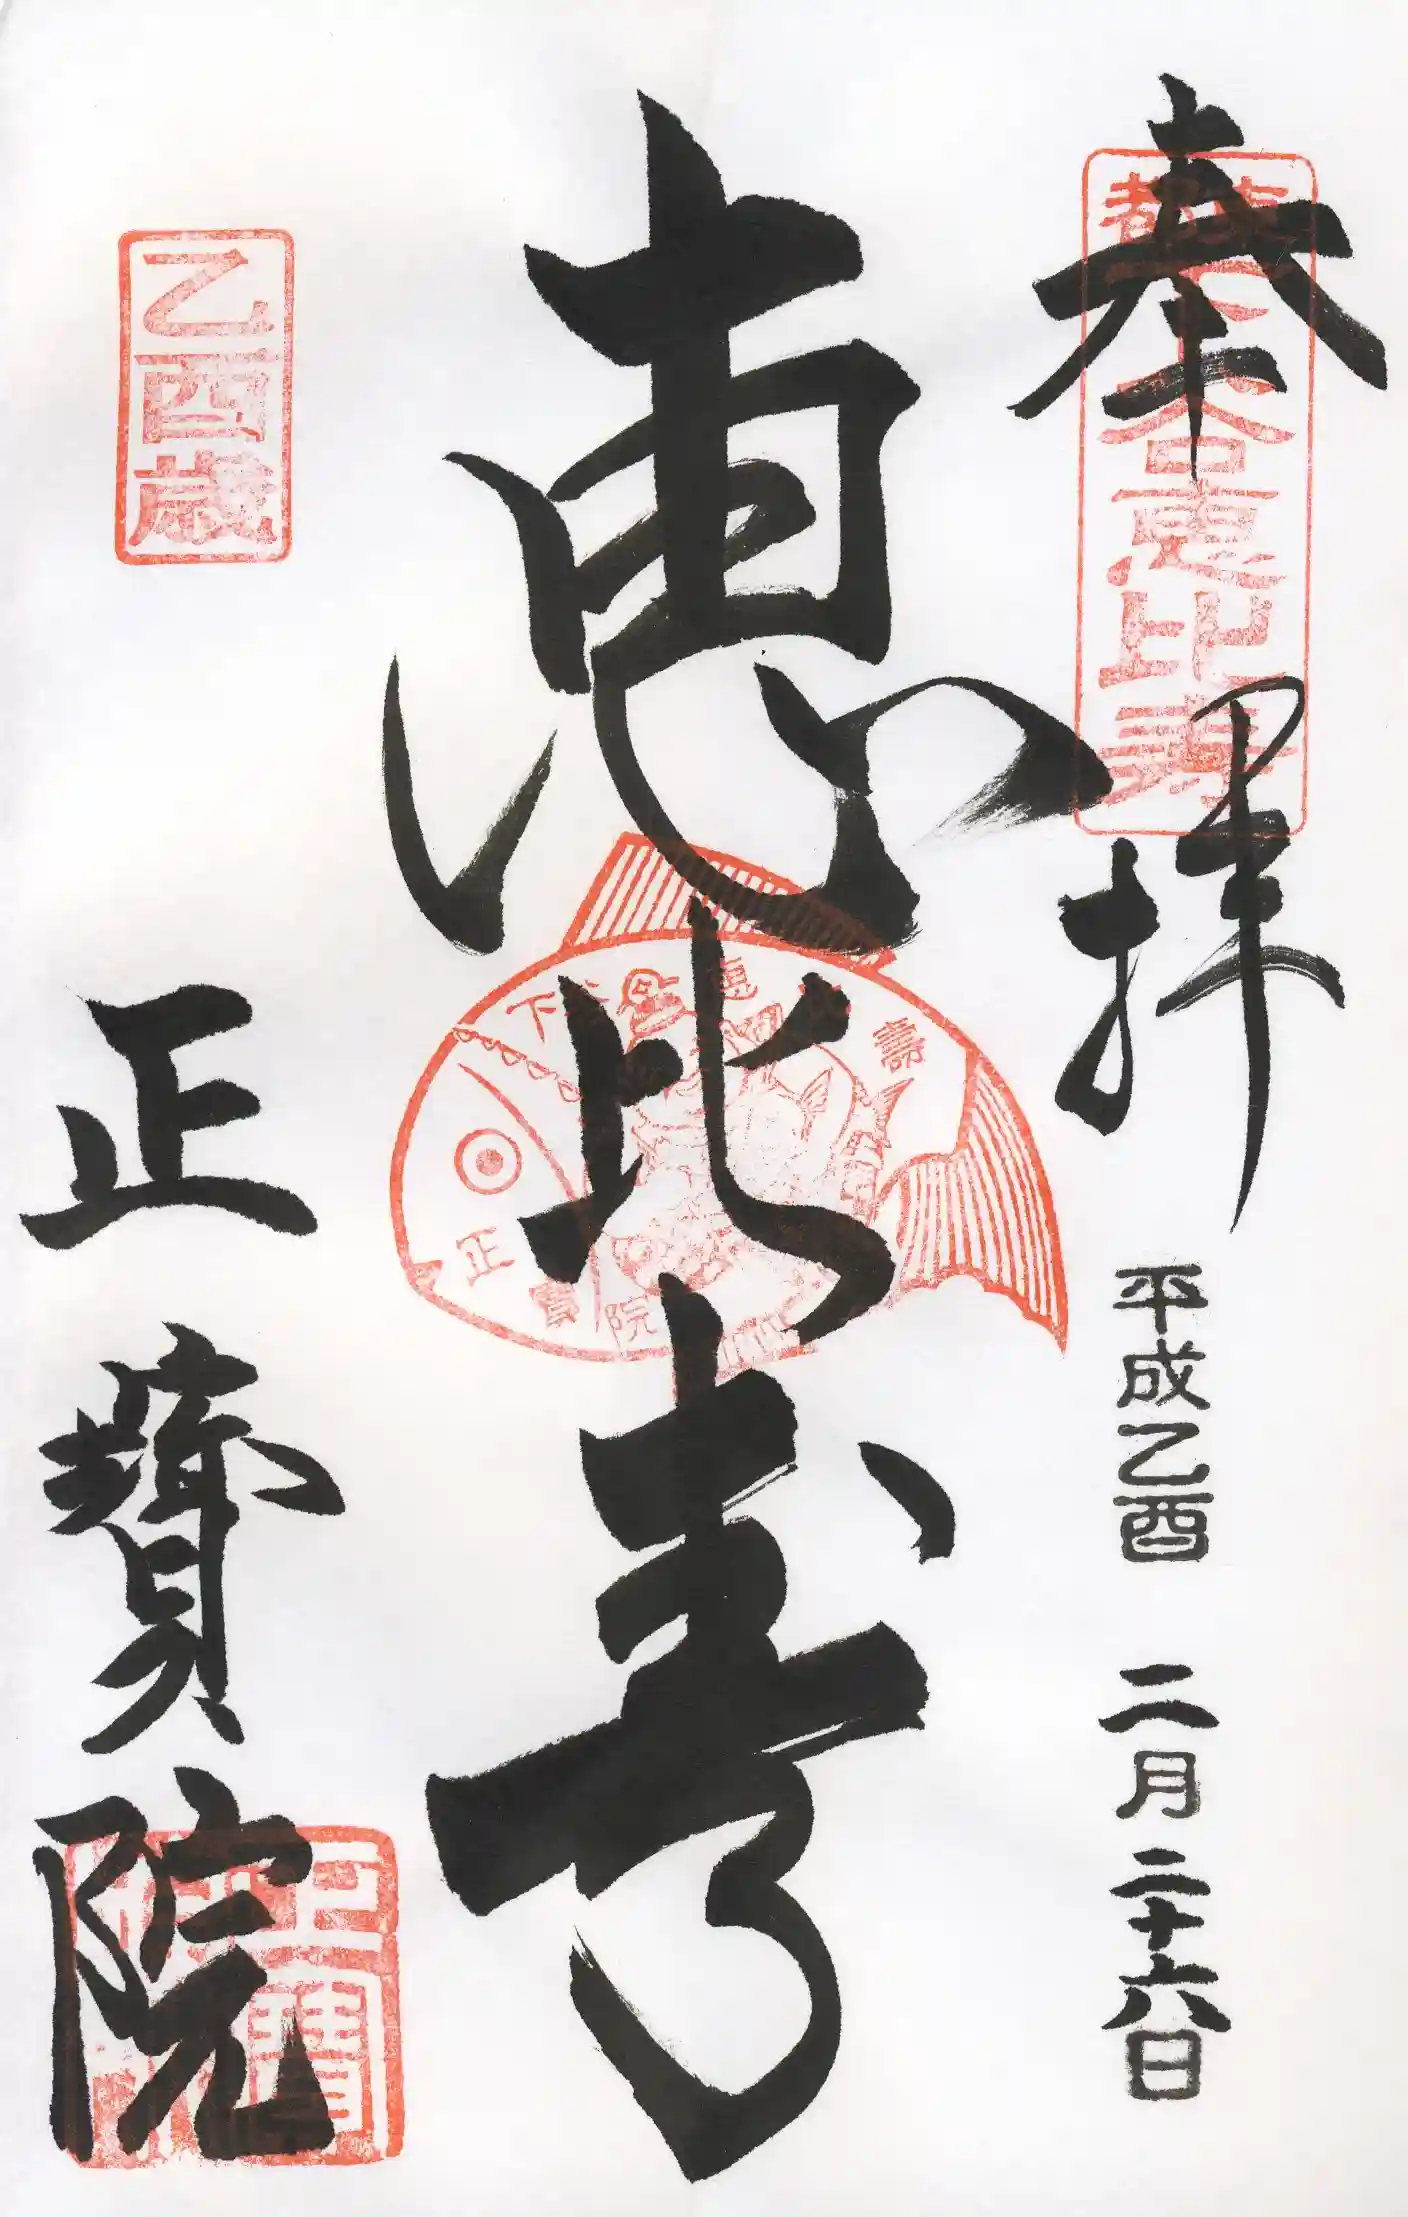 奉拝
平成乙酉 二月 二十六日
恵比寿
正寶院
乙酉歳
恵比寿
下谷
壽
正寶院
正寶